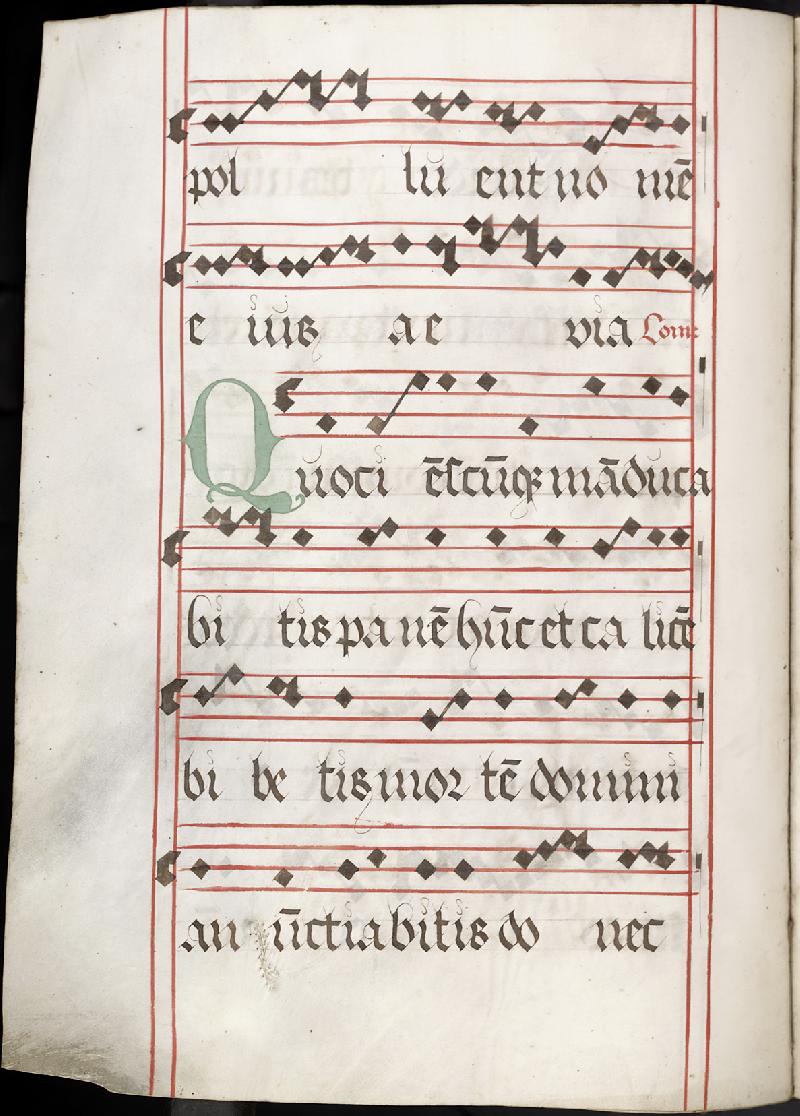 pol lu ent uo mē
e ius ae via Com̄
Quoci ēscūqꝫ māduca
bi tis pa nē hūc et ca licē
bi be tis mor tē domini
an ūctiabitis do nec